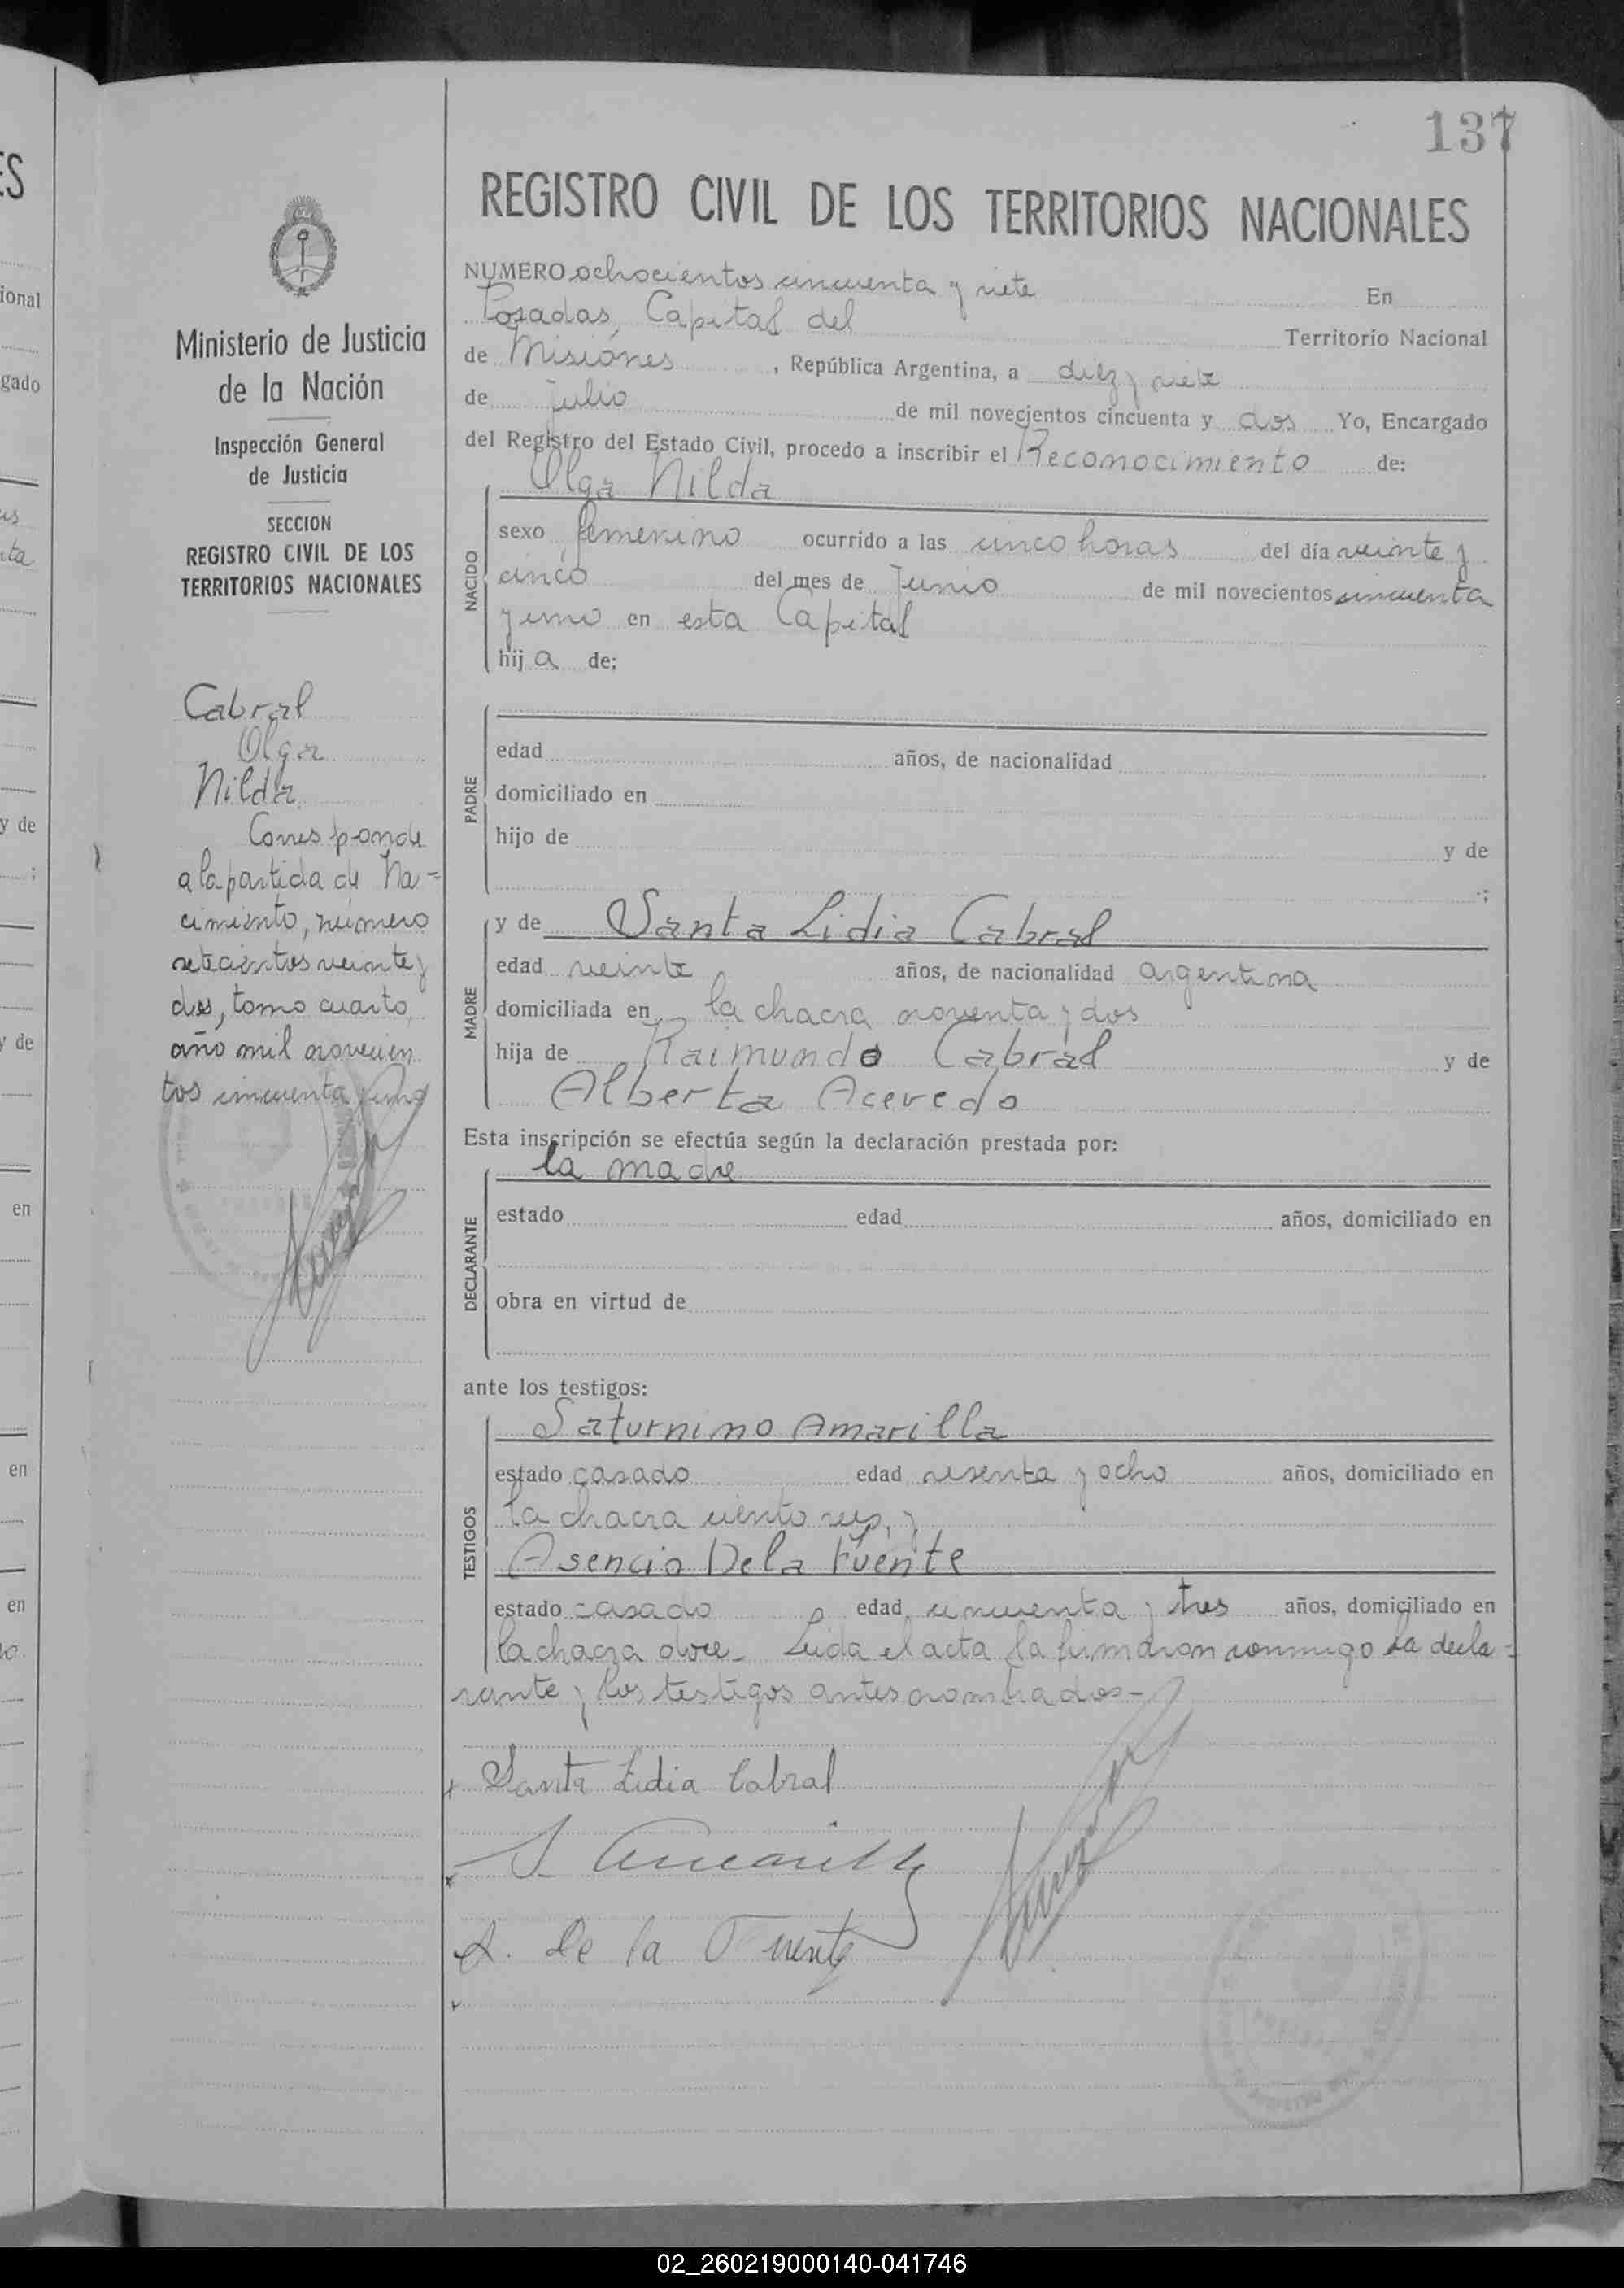 137
REGISTRO CIVIL DE LOS TERRITORIOS NACIONALES
NUMERO ochocientos cincuenta y siete En
Posadas, Capital del Territorio Nacional
de Misiones, República Argentina, a diez y siete
de julio de mil novecientos cincuenta y dos Yo, Encargado
del Registro del Estado Civil, procedo a inscribir el Reconocimiento de:
Olga Nilda
NACIDO
sexo femenino ocurrido a las cinco horas del día veinte y
cinco del mes de Junio de mil novecientos cincuenta
y uno en esta Capital
hija de;
PADRE
edad años, de nacionalidad
domiciliado en
hijo de y de
;
MADRE
y de Santa Lidia Cabral
edad veinte años, de nacionalidad argentina
domiciliada en la chacra noventa y dos
hija de Raimundo Cabral y de
Alberta Acevedo
Esta inscripción se efectúa según la declaración prestada por:
la madre
DECLARANTE
estado edad años, domiciliado en
obra en virtud de
ante los testigos:
TESTIGOS
Saturnino Amarilla
estado casado edad sesenta y ocho años, domiciliado en
la chacra ciento seis, y
Asencio De la Fuente
estado casado edad cincuenta y tres años, domiciliado en
la chacra doce_ Leida el acta la firmaron conmigo la decla=
rante y los testigos antes nombrados-
Santa Lidia Cabral
S. Amarilla
A. De la Fuente
Ministerio de Justicia
de la Nación
Inspección General
de Justicia
SECCION
REGISTRO CIVIL DE LOS
TERRITORIOS NACIONALES
Cabral
Olga
Nilda
Corresponde
a la partida de Na=
cimiento, número
setecientos veinte y
dos, tomo cuarto
año mil novecien
tos cincuenta y uno
ES
ional
gado
y de
;
y de
en
en
en
02_260219000140-041746